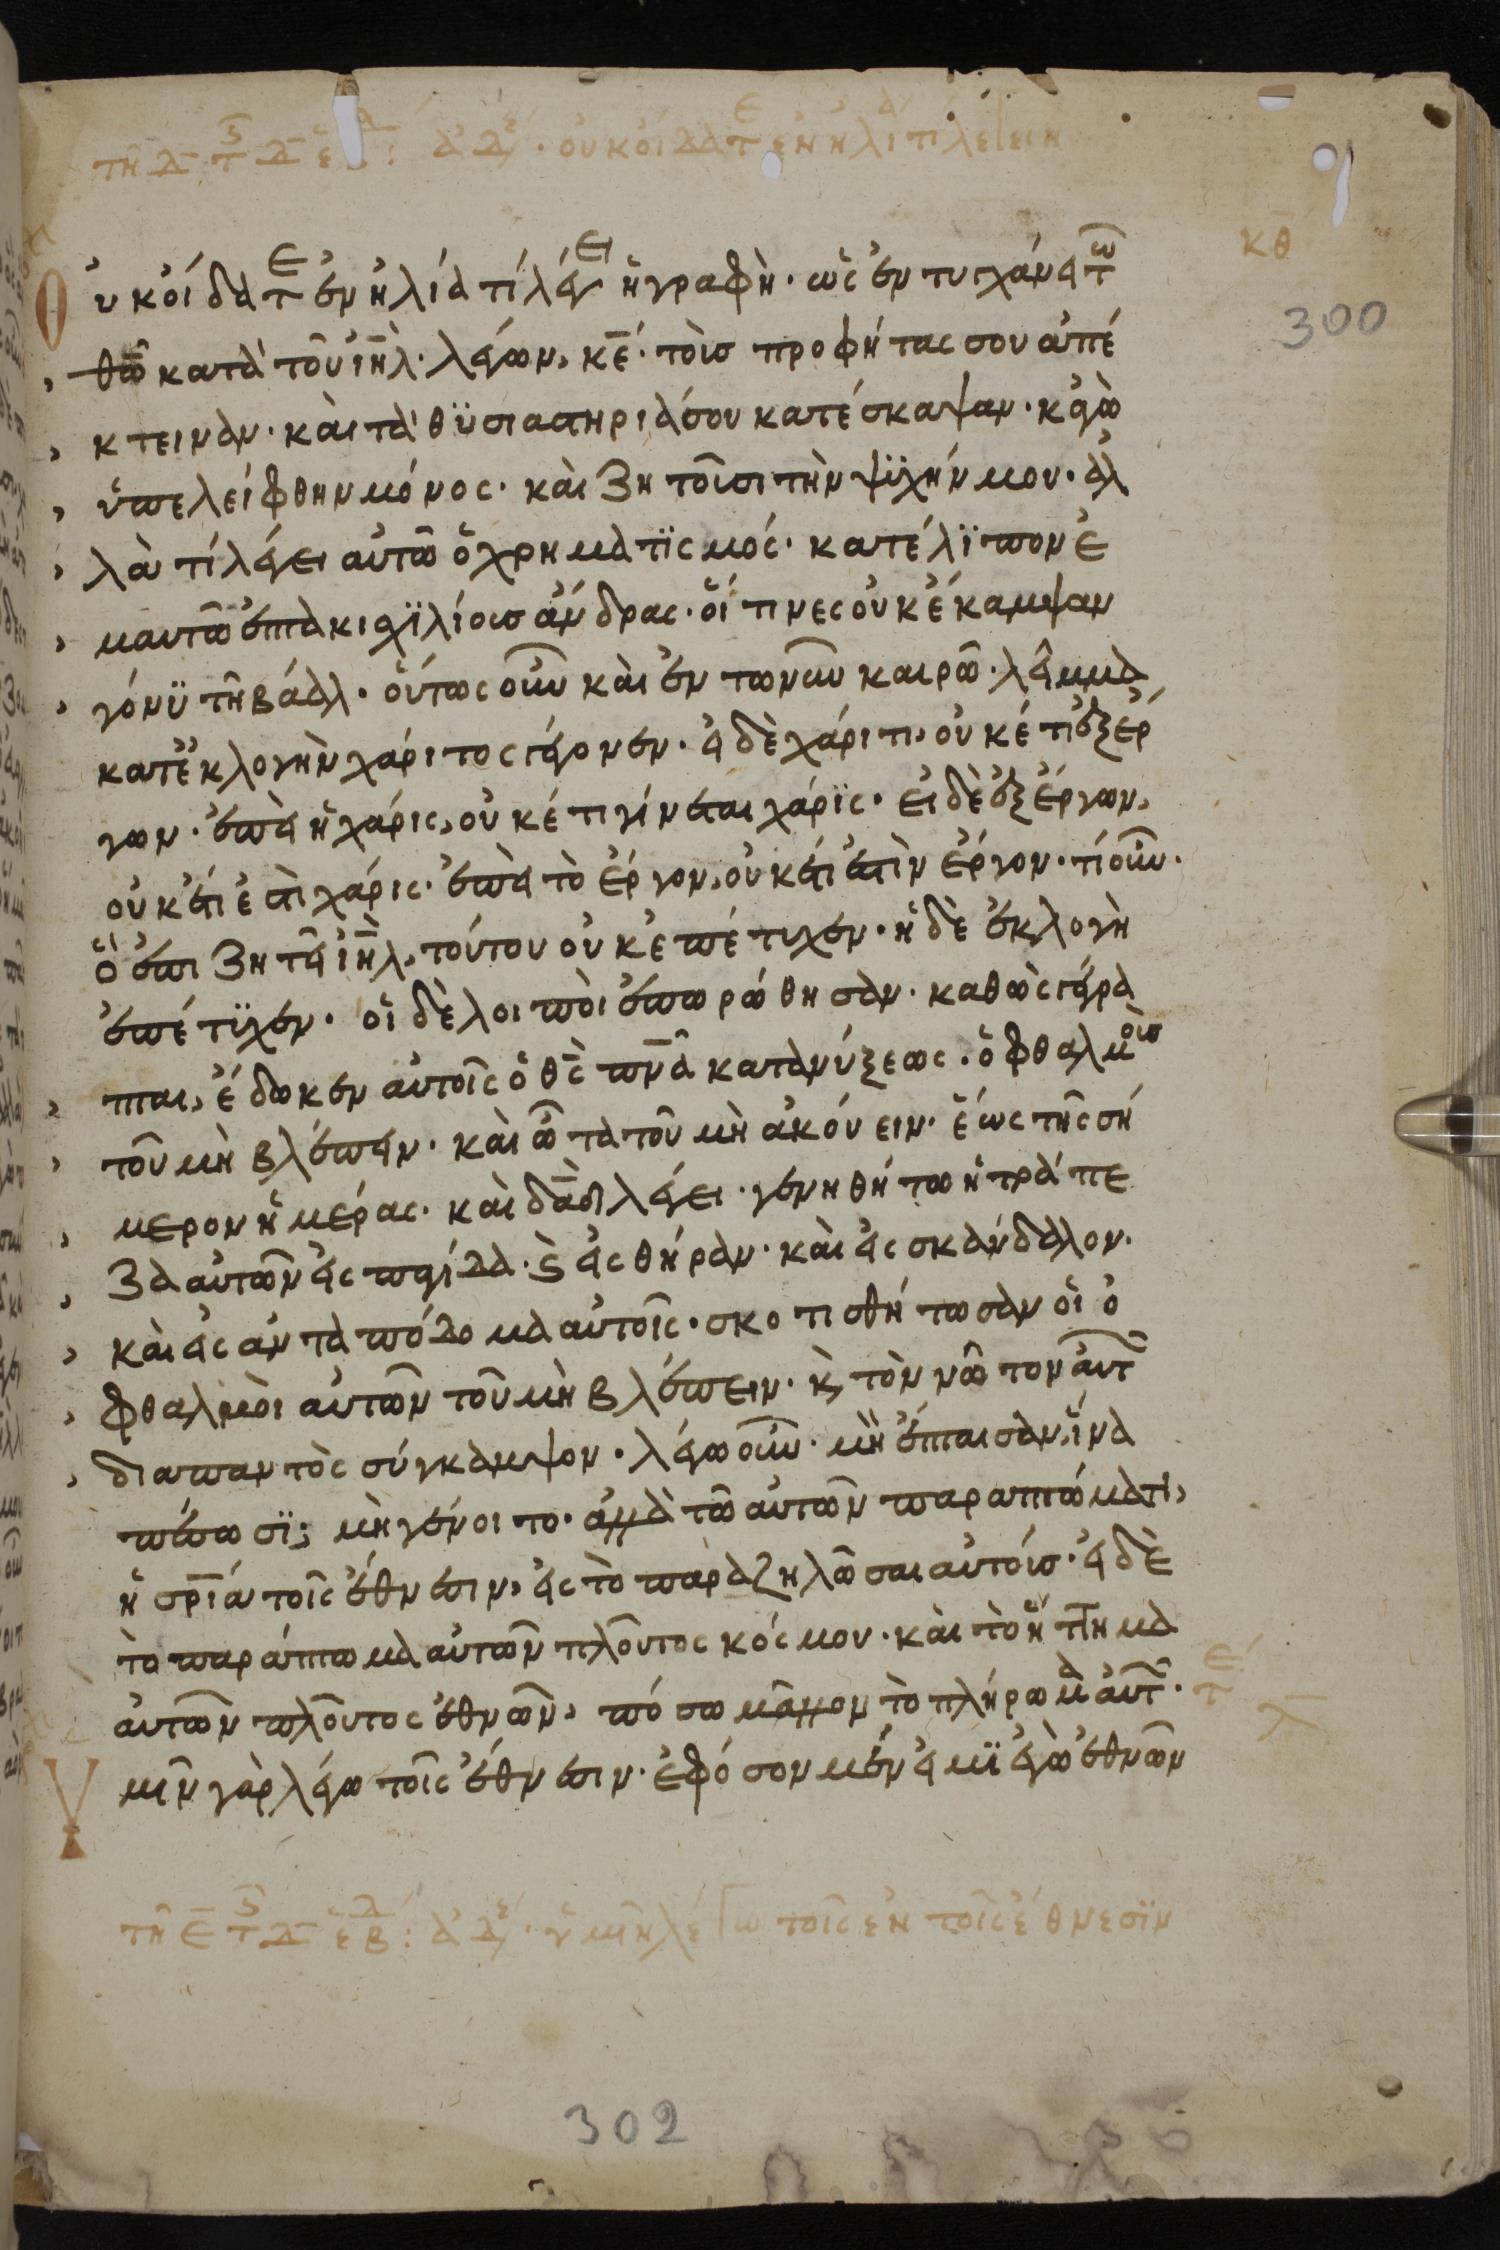 τῆ δ τ δ ε : ἀδ · οὐκ οἴδατ ἐν ἠλί τί λέγει η
κθ
300
Οὐκ οἴδατε ἐν ἠλία τί λέγει ἡ γραφὴ · ὡς ἐντυγχάνει τῶ
θῶ κατὰ τοῦ ἰηλ · λέγων, κε · τοὺσ προφήτας σου ἀπέ
κτειναν · καὶ τὰ θϋσιαστήριά σου κατέσκαψαν · κἀγὼ
ὑπελείφθην μόνος · καὶ ζητοῦσι τὴν ψϋχήν μου · ἀλ
λὰ τί λέγει αὐτῶ ὁ χρηματϊσμός · κατέλϊπον ἐ
μαυτῶ ἑπτακισχϊλίουσ ἄνδρας · οἵτινες οὐκ ἔκαμψαν
γόνϋ τῆ βάαλ · οὕτως οὖν καὶ ἐν τῶ νῦν καιρῶ · λεῖμμα
κατ ἐκλογὴν χάριτος γέγονεν · εἰ δὲ χάριτι, οὐκέτι ἐξ ἔρ
γων · ἐπεὶ ἡ χάρις, οὐκέτι γίνεται χάρϊς · εἰ δὲ ἐξ ἔργων,
οὐκέτι ἐστὶ χάρις · ἐπεὶ τὸ ἔργον, οὐκέτι ἐστὶν ἔργον · τί οὖν ·
ὃ ἐπιζητεῖ ἰηλ, τούτου οὐκ ἐπέτυχεν · ἡ δὲ ἐκλογὴ
ἐπέτϋχεν · οἱ δὲ λοιποὶ ἐπωρώθησαν · καθὼς γέγρα
πται, ἔδωκεν αὐτοῖς ὁ θς πνα κατανύξεως · ὀφθαλμοὺσ
τοῦ μὴ βλέπειν · καὶ ὦτα τοῦ μὴ ἀκούειν · ἕως τῆς σή
μερον ἡμέρας · καὶ δαδ λέγει · γενηθήτω ἡ τράπε
ζα αὐτῶν εἰς παγίδα · ϛ εἰς θήραν · καὶ εἰς σκάνδαλον ·
καὶ εἰς ἀνταπόδομα αὐτοῖς · σκοτισθήτωσαν οἱ ὀ
φθαλμοὶ αὐτῶν τοῦ μὴ βλέπειν · ϗ τὸν νῶτον αὐτ
διαπαντὸς σύγκαμψον · λέγω οὖν · μὴ ἔπταισαν, ἵνα
πέσωσϊ; μὴ γένοιτο · ἀλλὰ τῶ αὐτῶν παραπτώματι,
ἡ σρία τοῖς ἔθνεσιν, εἰς τὸ παραζηλῶσαι αὐτούσ · εἰ δὲ
τὸ παράπτωμα αὐτῶν πλοῦτος κόσμου · καὶ τὸ ἥττημα
αὐτῶν πλοῦτος ἐθνῶν, πόσω μᾶλλον τὸ πλήρωμα αὐτ · τε
λ
Υμῖν γὰρ λέγω τοῖς ἔθνεσιν · ἐφόσον μέν εἰμϊ ἐγὼ ἐθνῶν
τῆ ε τ δ ε β : ἀδ · ὑμῖν λέγω τοῖς ἐν τοῖς ἔθνεσϊν
302